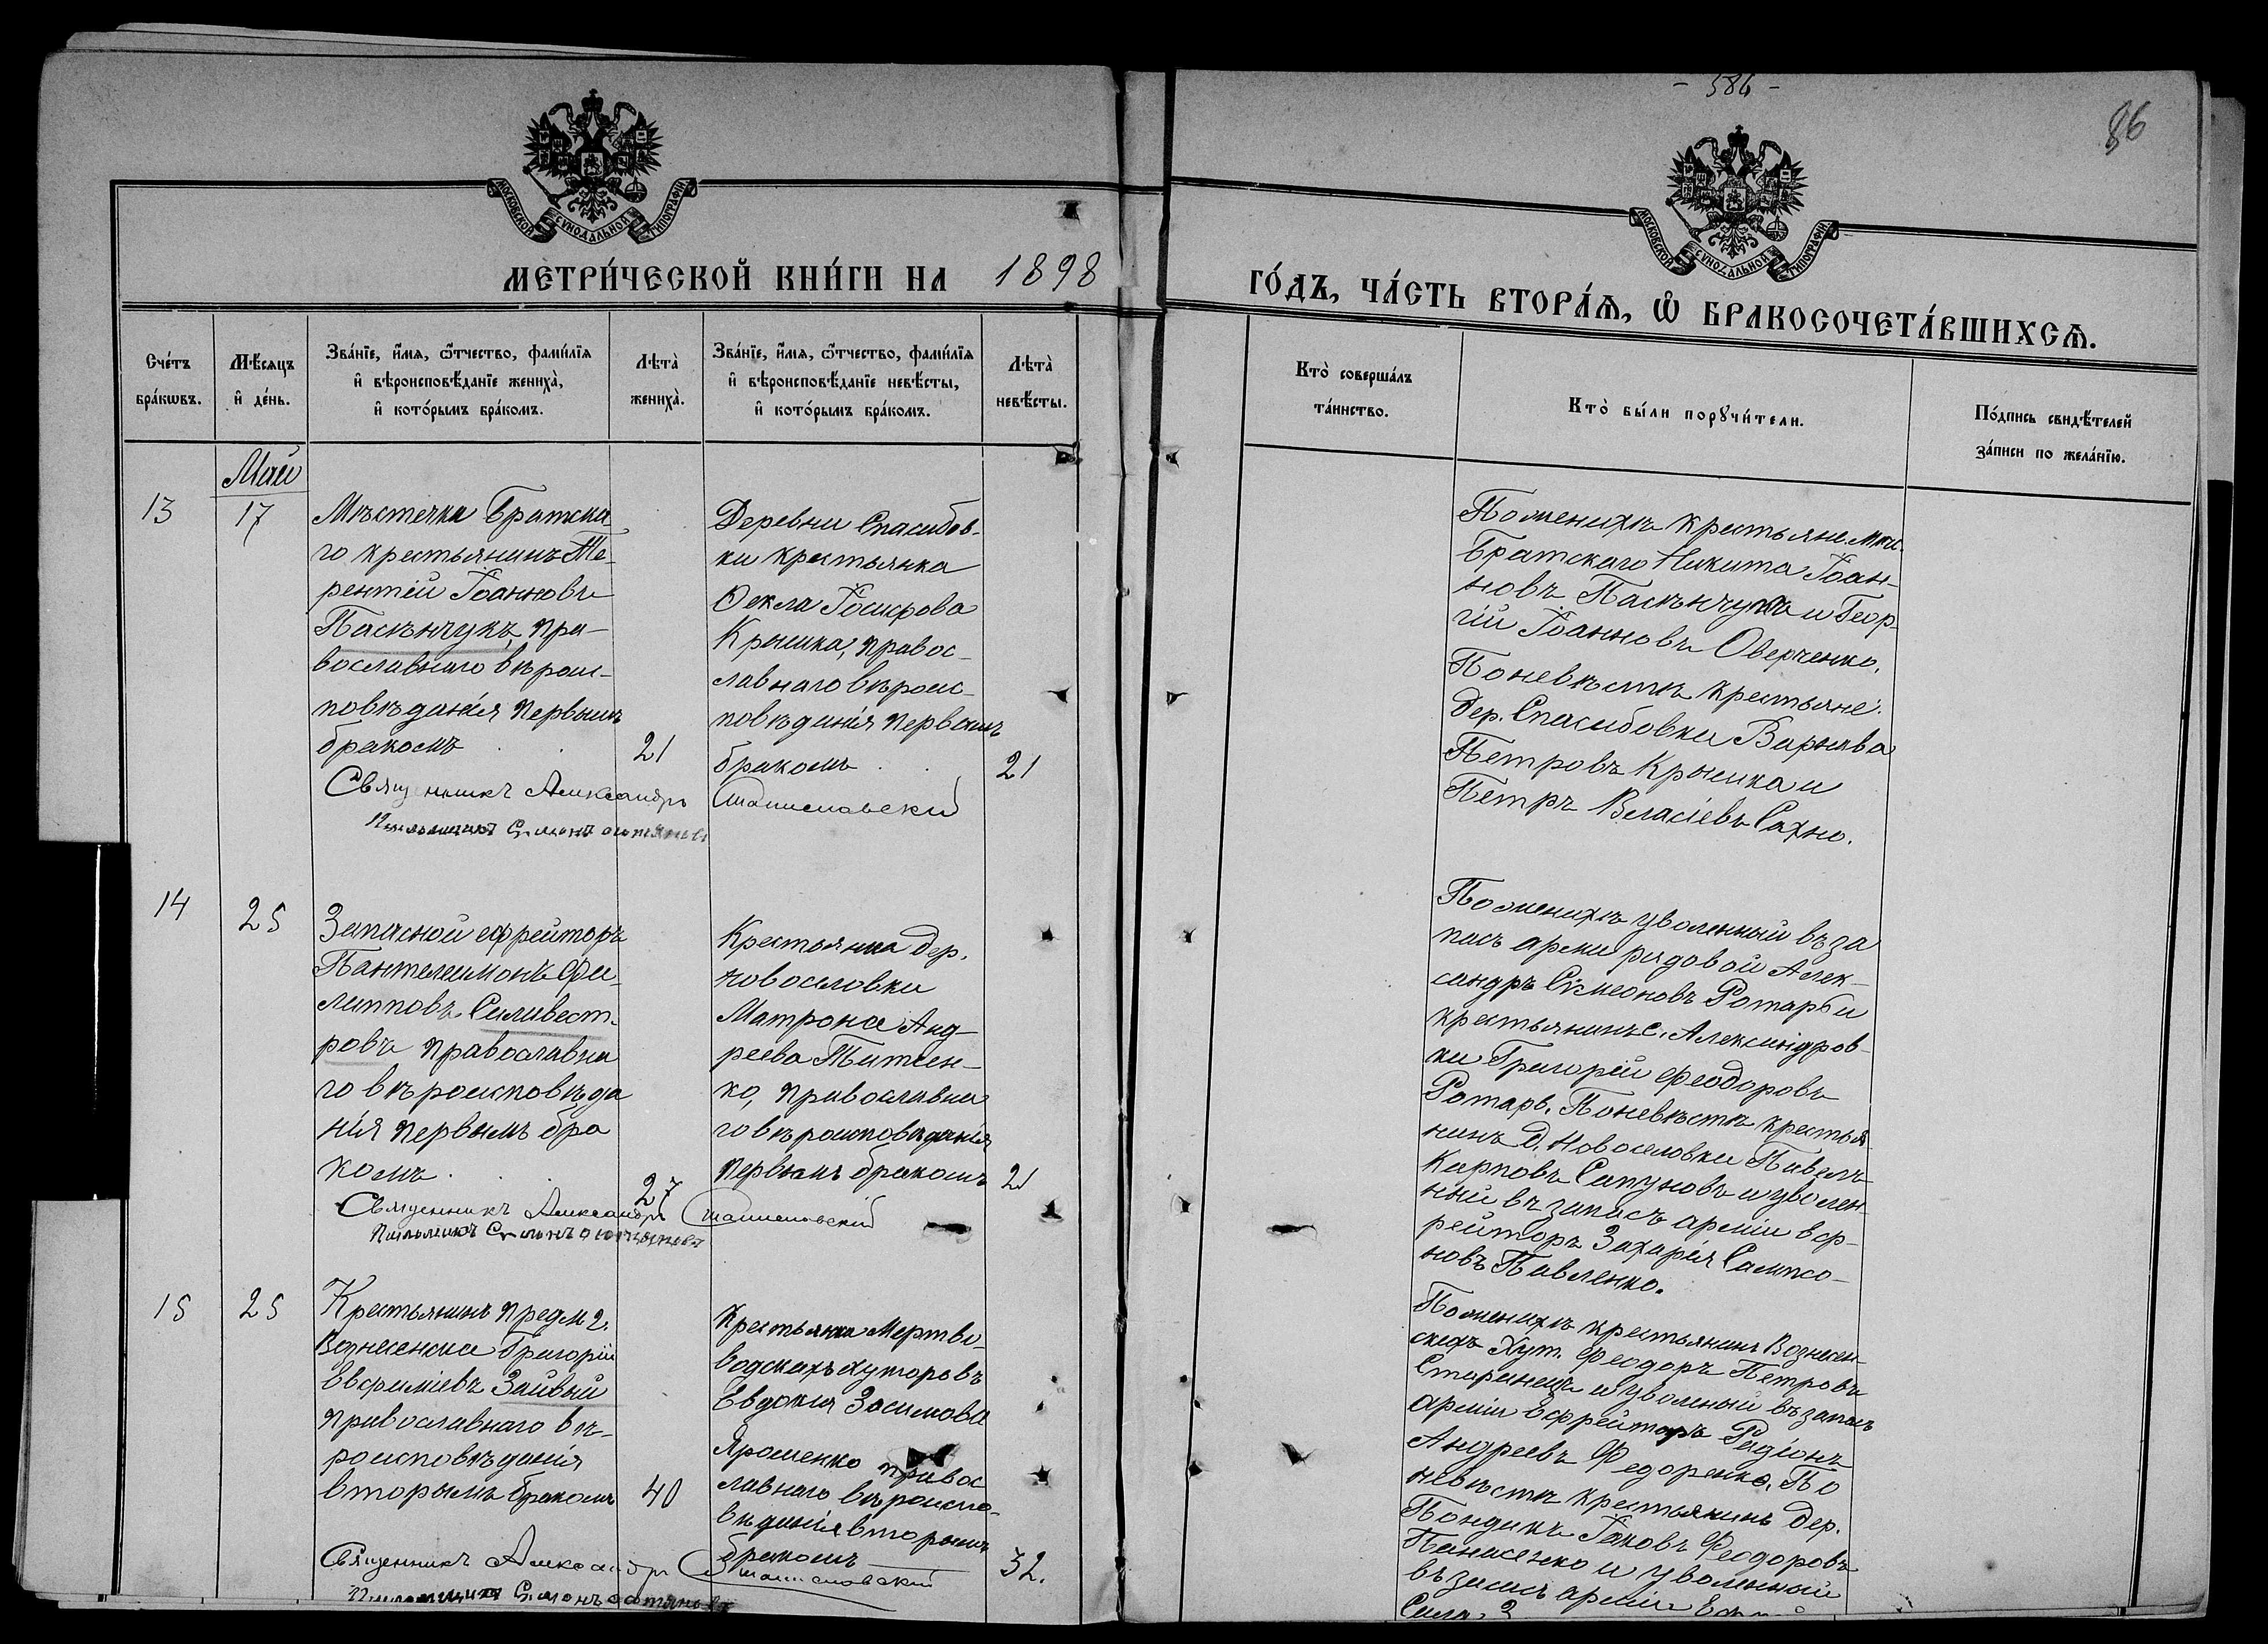 - 586 -
86
МОСКОВСКОЙ СѴНОДАЛЬНОЙ ТИПОГРАФІИ
МОСКОВСКОЙ СѴНОДАЛЬНОЙ ТИПОГРАФІИ
МЕТРИ́ЧЕСКОЙ КНИ́ГИ НА 1898
ГО́ДЪ, ЧА́СТЬ ВТОРА́Ѧ, Ѽ БРАКОСОЧЕТА́ВШИХСѦ.
Сче́тъ
бра́кѡвъ.
Мѣ́сяцъ
и҆ де́нь.
Зва́нїе, и҆́мя, ѻ҆́тчество, фами́лїя
и҆ вѣроисповѣ́данїе жениха̀,
и҆ кото́рымъ бра́комъ.
Лѣта̀
жениха̀.
Зва́нїе, и҆́мя, ѻ҆́тчество, фами́лїя
и҆ вѣроисповѣ́данїе невѣ́сты,
и҆ кото́рымъ бра́комъ.
Лѣта̀
невѣ́сты.
Кто̀ соверша́лъ
та́инство.
Кто̀ бы́ли порꙋчи́тели.
По́дпись свидѣ́телей
за́писи по жела́нїю.
Май
13
17
Мѣстечка Братска
го крестьянинъ Те-
рентій Іоанновъ
Паскѣнчукъ, пра-
вославнаго вѣроис-
повѣданія первымъ
бракомъ
21
Деревни Спасибов-
ки крестьянка
Ѳекла Іосифова
Крышка, правос-
лавнаго вѣроис-
повѣданія первымъ
бракомъ
21
Священникъ Александръ Станиславскій
Псаломщикъ
По женихѣ крестьяне м.
Братскаго Никита Іоан-
новъ Паскѣнчукъ и Геор-
гій Іоанновъ Оверченко.
По невѣстѣ крестьяне
дер. Спасибовки Варѳава
Петровъ Крышка и
Петръ Власіевъ Сахно.
14
25
Запасной ефрейторъ
Пантелеимонъ Фи-
липповъ Силивест-
ровъ православна
го вѣроисповѣда
нія первымъ бра
комъ
27
Крестьянка дер.
Новоселовки
Матрона Анд-
реева Титен-
ко, православна
го вѣроисповѣданія
первымъ бракомъ
21
Священникъ Александръ Станиславскій
Псаломщикъ
По женихѣ уволенный въ за
пасъ арміи рядовой Алек-
сандръ Сѵмеоновъ Ротарь и
крестьянинъ с. Александров-
ки Григорій Феодоровъ
Ротарь. По невѣстѣ крестья
нинъ д. Новоселовки Павелъ
Карповъ Сапуновъ и уволен-
ный въ запасъ арміи еф-
рейторъ Захарія Сампсо-
новъ Павленко.
15
25
Крестьянинъ предм. г.
Вознесенска Григорій
Евфиміевъ Зайвый
православнаго вѣ-
роисповѣданія
вторымъ бракомъ
40
Крестьянка Мертво-
водскихъ хуторовъ
Евдокія Зосимова
Ярошенко правос
лавнаго вѣроиспо-
вѣданія вторымъ
бракомъ
32.
Священникъ Александръ Станиславскій
Псаломщикъ
По женихѣ крестьянинъ Вознесен-
скихъ хут. Феодоръ Петровъ
Старинецъ и уволеный въ запасъ
арміи Ефрейторъ Родіонъ
Андреевъ Федоренко. По
невѣстѣ крестьянинъ дер.
Іаковъ Феодоровъ
Панасенко и уволенный
въ запасъ арміи